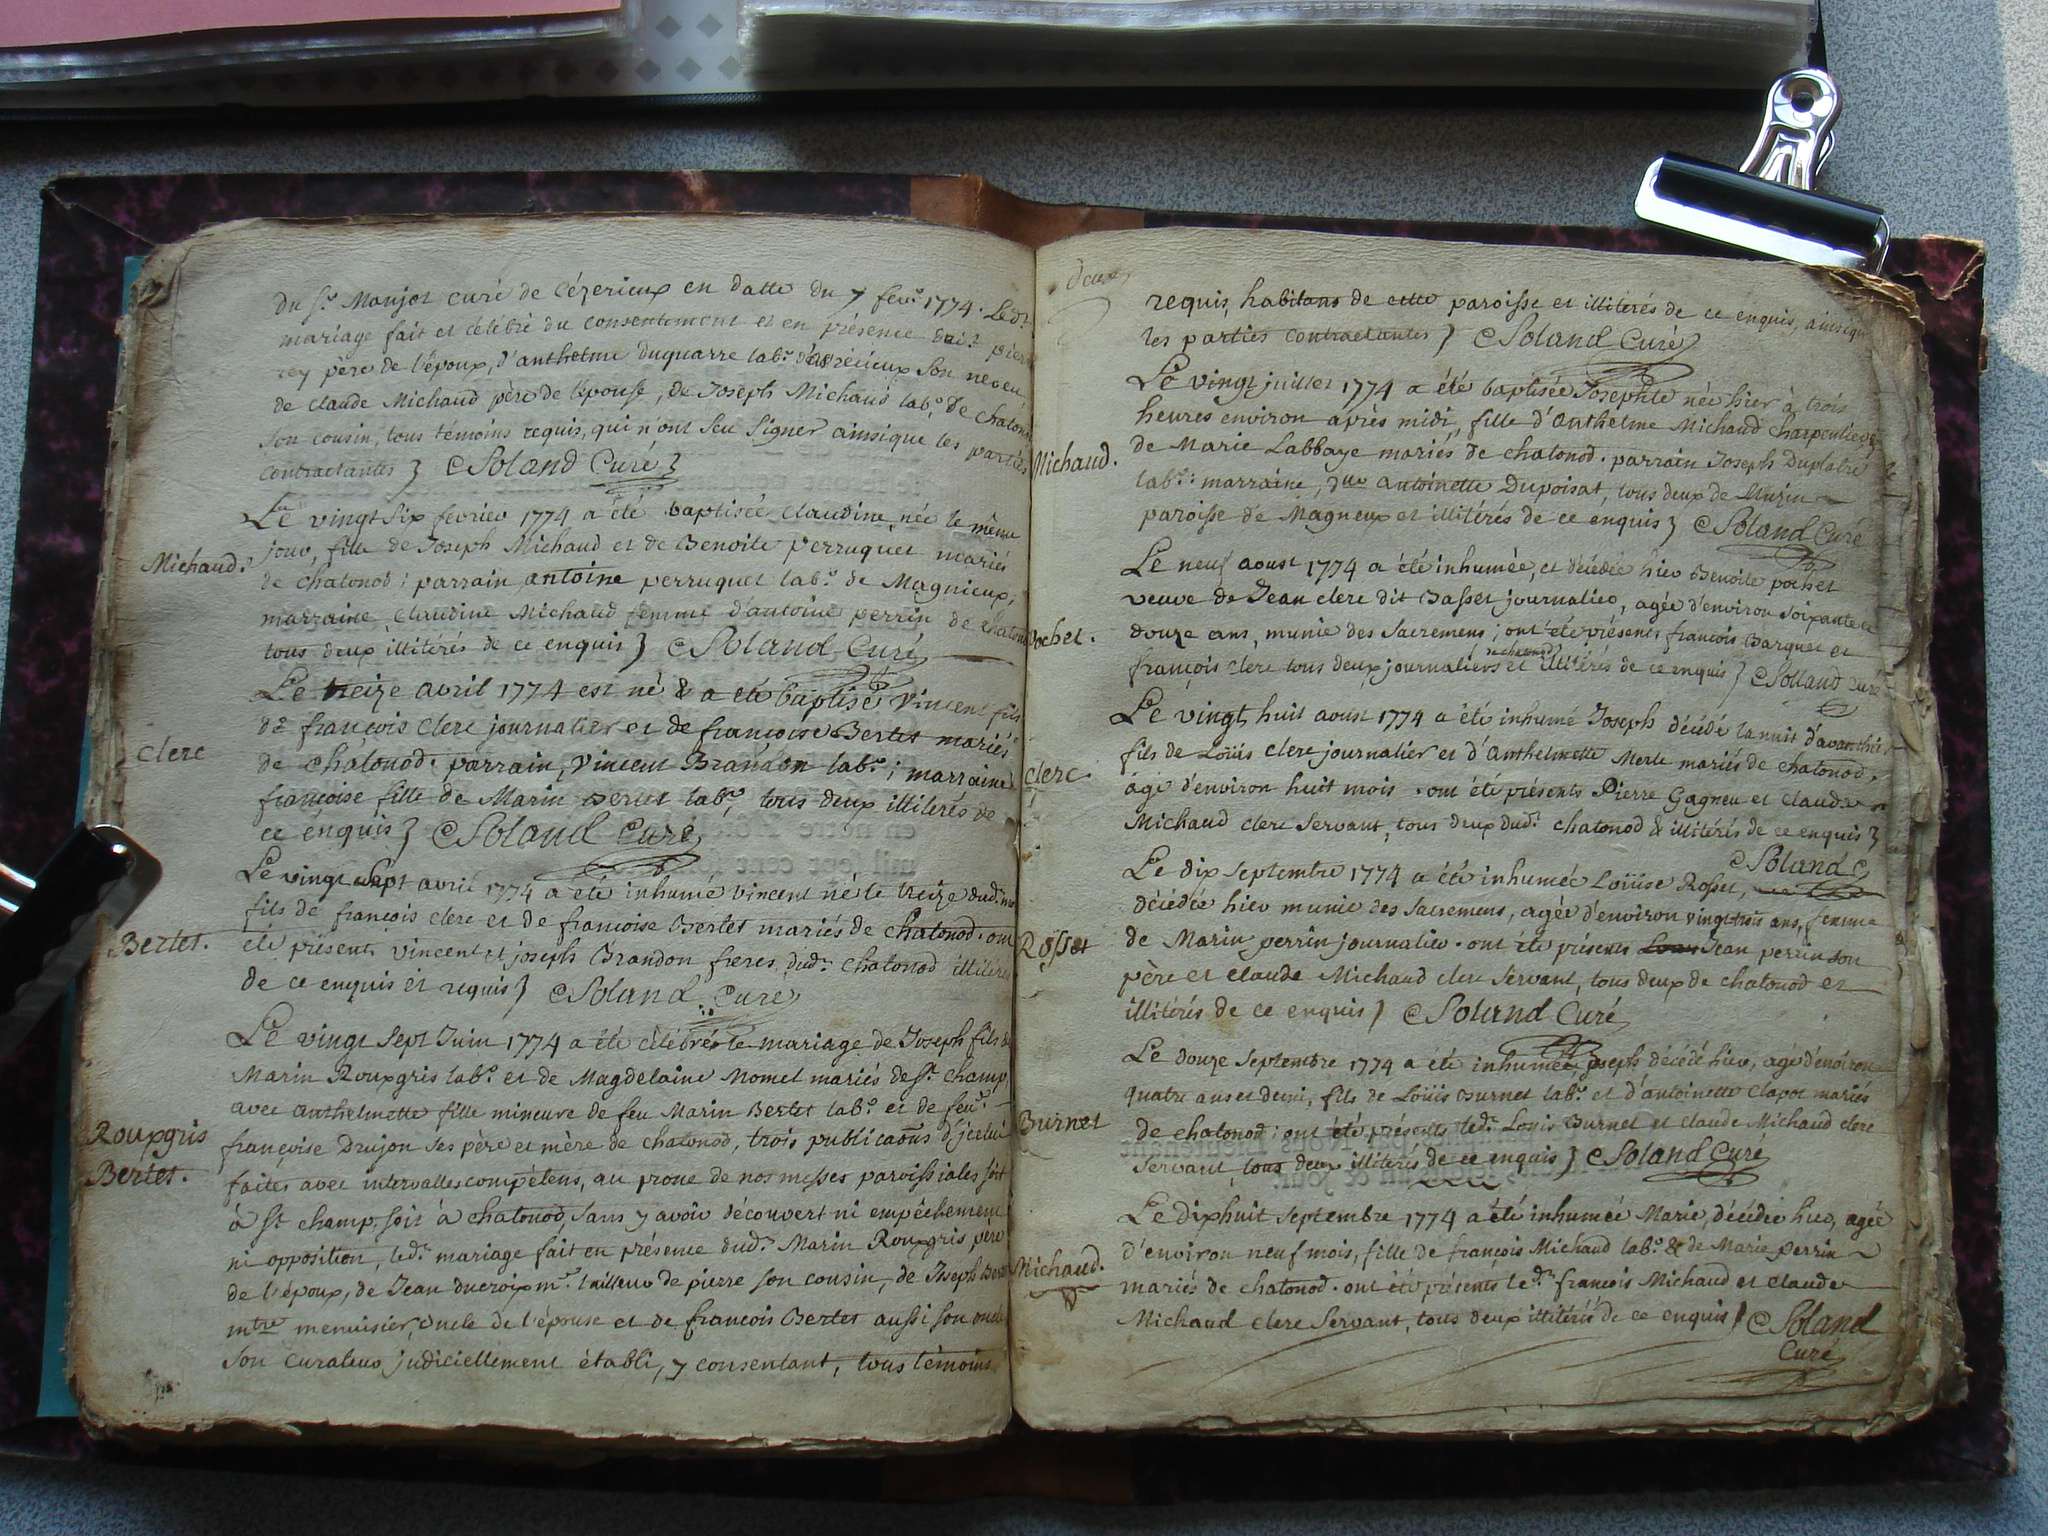 du Sr. Manjot curé de Cézerieux en datte du 7 fevr. 1774. Led.
mariage fait et célébré du consentement et en présence dud. pierre
rey père de l'époux, d'anthelme duquarre labr. son neveu,
de claude Michaud père de l'épouse, de Joseph Michaud labr. de chatonod
son cousin, tous témoins requis, qui n'ont seu signer ainsique les parties
contractantes} Soland Curé}
Michaud.
Le vingt six fevrier 1774 a été baptisée claudine, née le même
jour, fille de Joseph Michaud et de Benoite perruquet mariés
de chatonod; parrain antoine perruquet labr. de Magnieux;
marraine claudine Michaud femme d'antoine perrin de chatonod
tous deux illitérés de ce enquis} Soland Curé
Clerc
Le treize avril 1774 est né & a été baptisé vincent fils
de françois clerc journalier et de françoise Bertet mariés
de chatonod. parrain, vincent Brandon labr.; marraine
françoise fille de Marin Bertet labr., tous deux illiterés de
ce enquis} Soland Curé
Bertet.
Le vingt sept avril 1774 a été inhumé vincent né le treize dud. mois
fils de françois clerc et de françoise Bertet mariés de chatonod. ont
été présents vincent et joseph Brandon freres dud. chatonod illitérés
de ce enquis et requis} Soland Curé
Rouxgris
Bertet.
Le vingt sept Juin 1774 a été célébré le mariage de Joseph fils de
Marin Rouxgris labr. et de Magdelaine Momet mariés de St. champ,
avec anthelmette fille mineure de feu Marin Bertet labr. et de feue
françoise Drujon ses père et mère de chatonod, trois publicaons d'jcelui
faites avec intervalles compétens, au prone de nos messes paroissiales soit
à St champ, soit à chatonod, sans y avoir découvert ni empêchement
ni opposition, led. mariage fait en présence dud. Marin Rouxgris père
de l'époux, de Jean ducroix mr. tailleur de pierre son cousin, de Joseph Bertet
mtre menuisier, oncle de l'épouse et de francois Bertet aussi son oncle
son curateur judiciellement établi, y consentant, tous témoins
deux
requis, habitans de cette paroisse et illitérés de ce enquis, ainsique
les parties contractantes} Soland Curé
Michaud.
Le vingt juillet 1774 a été baptisée Josephte née hier à trois
heures environ après midi, fille d'Anthelme Michaud charpentier &
de Marie Labbaye mariés de chatonod. parrain Joseph Duplatre
labr.: marraine, dlle antoinette Dupoisat, tous deux de
paroisse de Magneux et illitérés de ce enquis} Soland Curé
Pochet.
Le neuf aoust 1774 a été inhumée, et décédée hier Benoite pochet
veuve de Jean clerc dit Basset journalier, agée d'environ soixante et
douze ans, munie des Sacremens; ont été présents françois Barquet et
françois clerc tous deux journaliers de chatonod et illitérés de ce enquis} Solland Curé
Clerc.
Le vingt huit aoust 1774 a été inhumé Joseph décédé la nuit d'avanthier
fils de Loüis clerc journalier et d'Anthelmette Merle mariés de chatonod.
âgé d'environ huit mois. ont été présents Pierre Gagneu et claude
Michaud clerc servant, tous deux dud. chatonod & illitérés de ce enquis}
Soland C.
Rosset
Le dix septembre 1774 a été inhumée Loüise Rosset,
décédée hier munie des Sacremens, agée d'environ vingt trois ans, femme
de Marin perrin journalier. ont été présents Jean perrin son
père et claude Michaud clerc servant, tous deux de chatonod et
illitérés de ce enquis} Soland Curé
Burnet
Le douze septembre 1774 a été inhumé joseph décédé hier, agé d'environ
quatre ans et demi, fils de Loüis Burnet labr. et d'antoinette Clapot mariés
de chatonod; ont été présents led. Louis Burnet et claude Michaud clerc
servant, tous deux illitérés de ce enquis} Soland Curé
Michaud.
Le dixhuit septembre 1774 a été inhumée Marie, décédée hier, agée
d'environ neuf mois, fille de françois Michaud labr. & de Marie perrin
mariés de chatonod. ont été présents led. françois Michaud et claude
Michaud clerc servant, tous deux illitérés de ce enquis} Soland
Curé